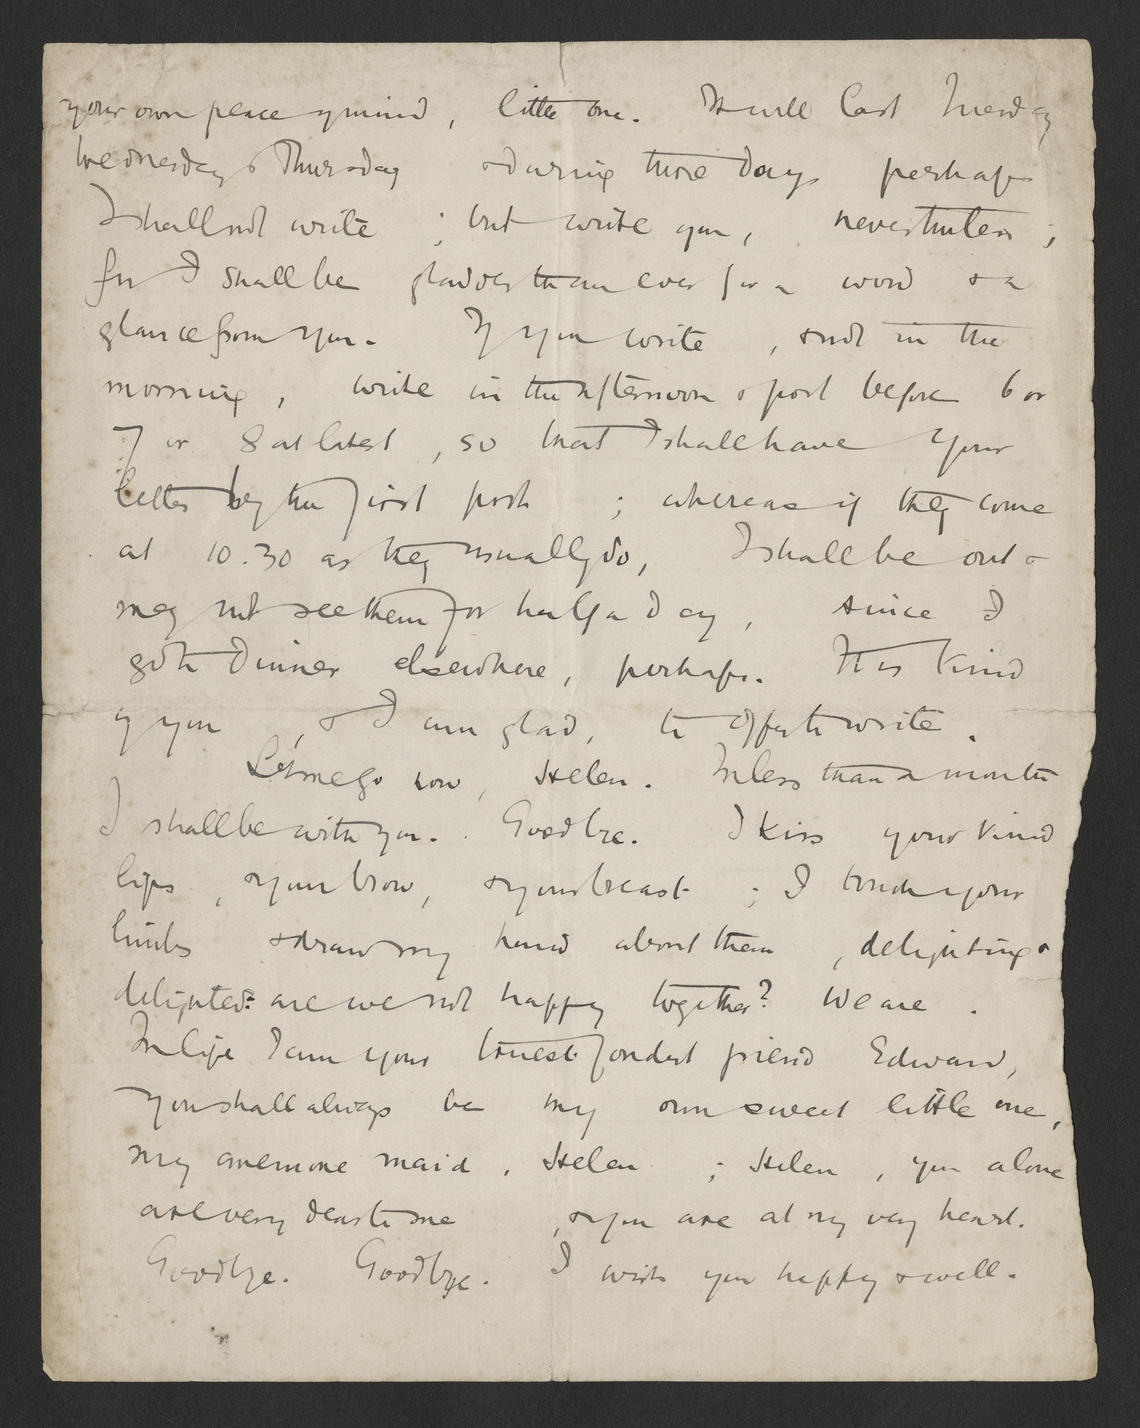 your own peace of mind, little one. It will last Tuesday
Wednesday & Thursday & during those days perhaps
I shall not write ; but write you, nevertheless ;
for I shall be gladder than ever for a word & a
glance from you. If you write , & not in the
morning , write in the afternoon & post before 6 or
7 or 8 at latest , so that I shall have your
letter by the first post ; whereas if they come
at 10.30 as they usually do, I shall be out &
may not see them for half a day , since I
go to dinner elsewhere, perhaps. It is kind
of you , & I am glad, to offer to write .
Let me go now , Helen. In less than a month
I shall be with you. Goodbye. I kiss your kind
lips , & your brow, & your breast ; I touch your
limbs & draw my hand about them , delighting &
delighted: are we not happy together? We are .
In life I am your truest fondest friend Edward,
You shall always be my own sweet little one,
my anemone maid , Helen ; Helen , you alone
are very dear to me , & you are at my very heart.
Goodbye. Goodbye. I wish you happy & well.